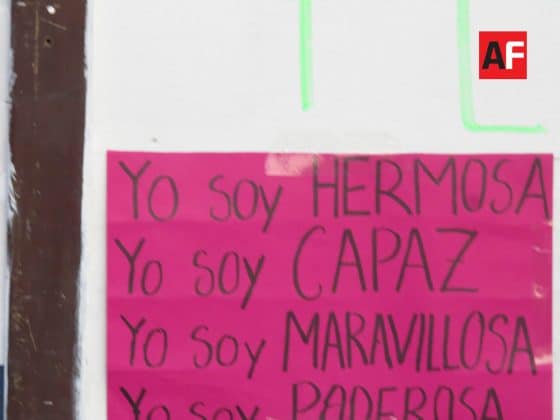 AF
Yo soy HERMOSA
Yo soy CAPAZ
Yo soy MARAVILLOSA
Yo soy PODEROSA